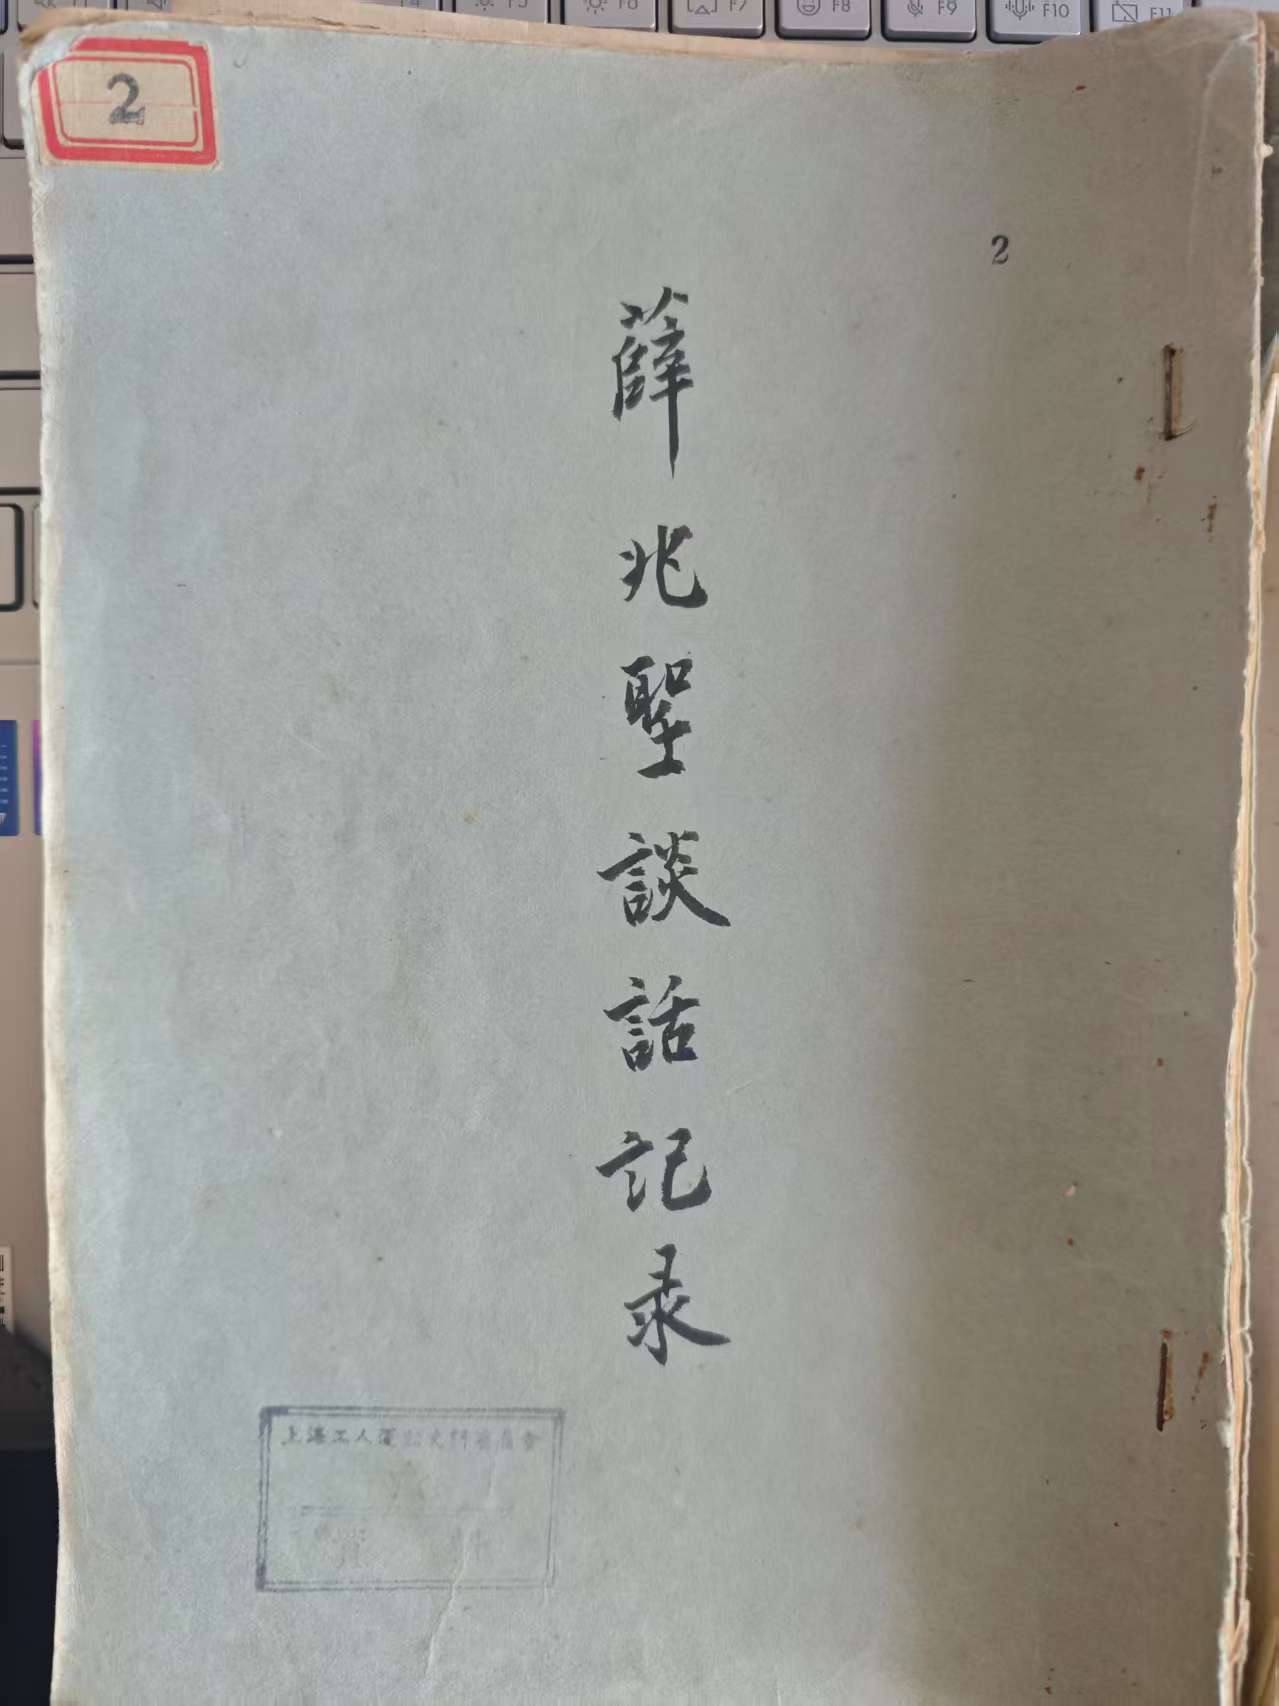 2
2
薛兆聖談話記录
上海工人運动史料委員會
F5
F6
F7
F8
F9
F10
F11